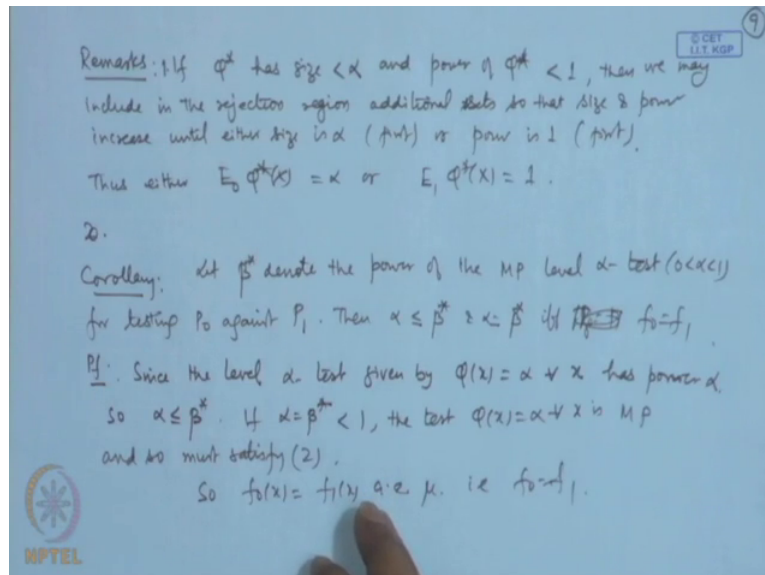 9
© CET
I.I.T. KGP
Remarks: 1. If φ* has size < α and power of φ* < 1, then we may
include in the rejection region additional sets so that size & power
increase until either size is α (first) or power is 1 (first).
Thus either E₀ φ*(X) = α or E₁ φ*(X) = 1.
2.
Corollary: Let β* denote the power of the MP level α-test (0<α<1)
for testing P₀ against P₁. Then α ≤ β* & α = β* iff f₀=f₁.
Pf. Since the level α-test given by φ(x) = α ∀ x has power α.
So α ≤ β*. If α = β* < 1, the test φ(x)=α ∀ x is MP
and so must satisfy (2).
So f₀(x) = f₁(x) a.e. μ. ie f₀=f₁.
NPTEL